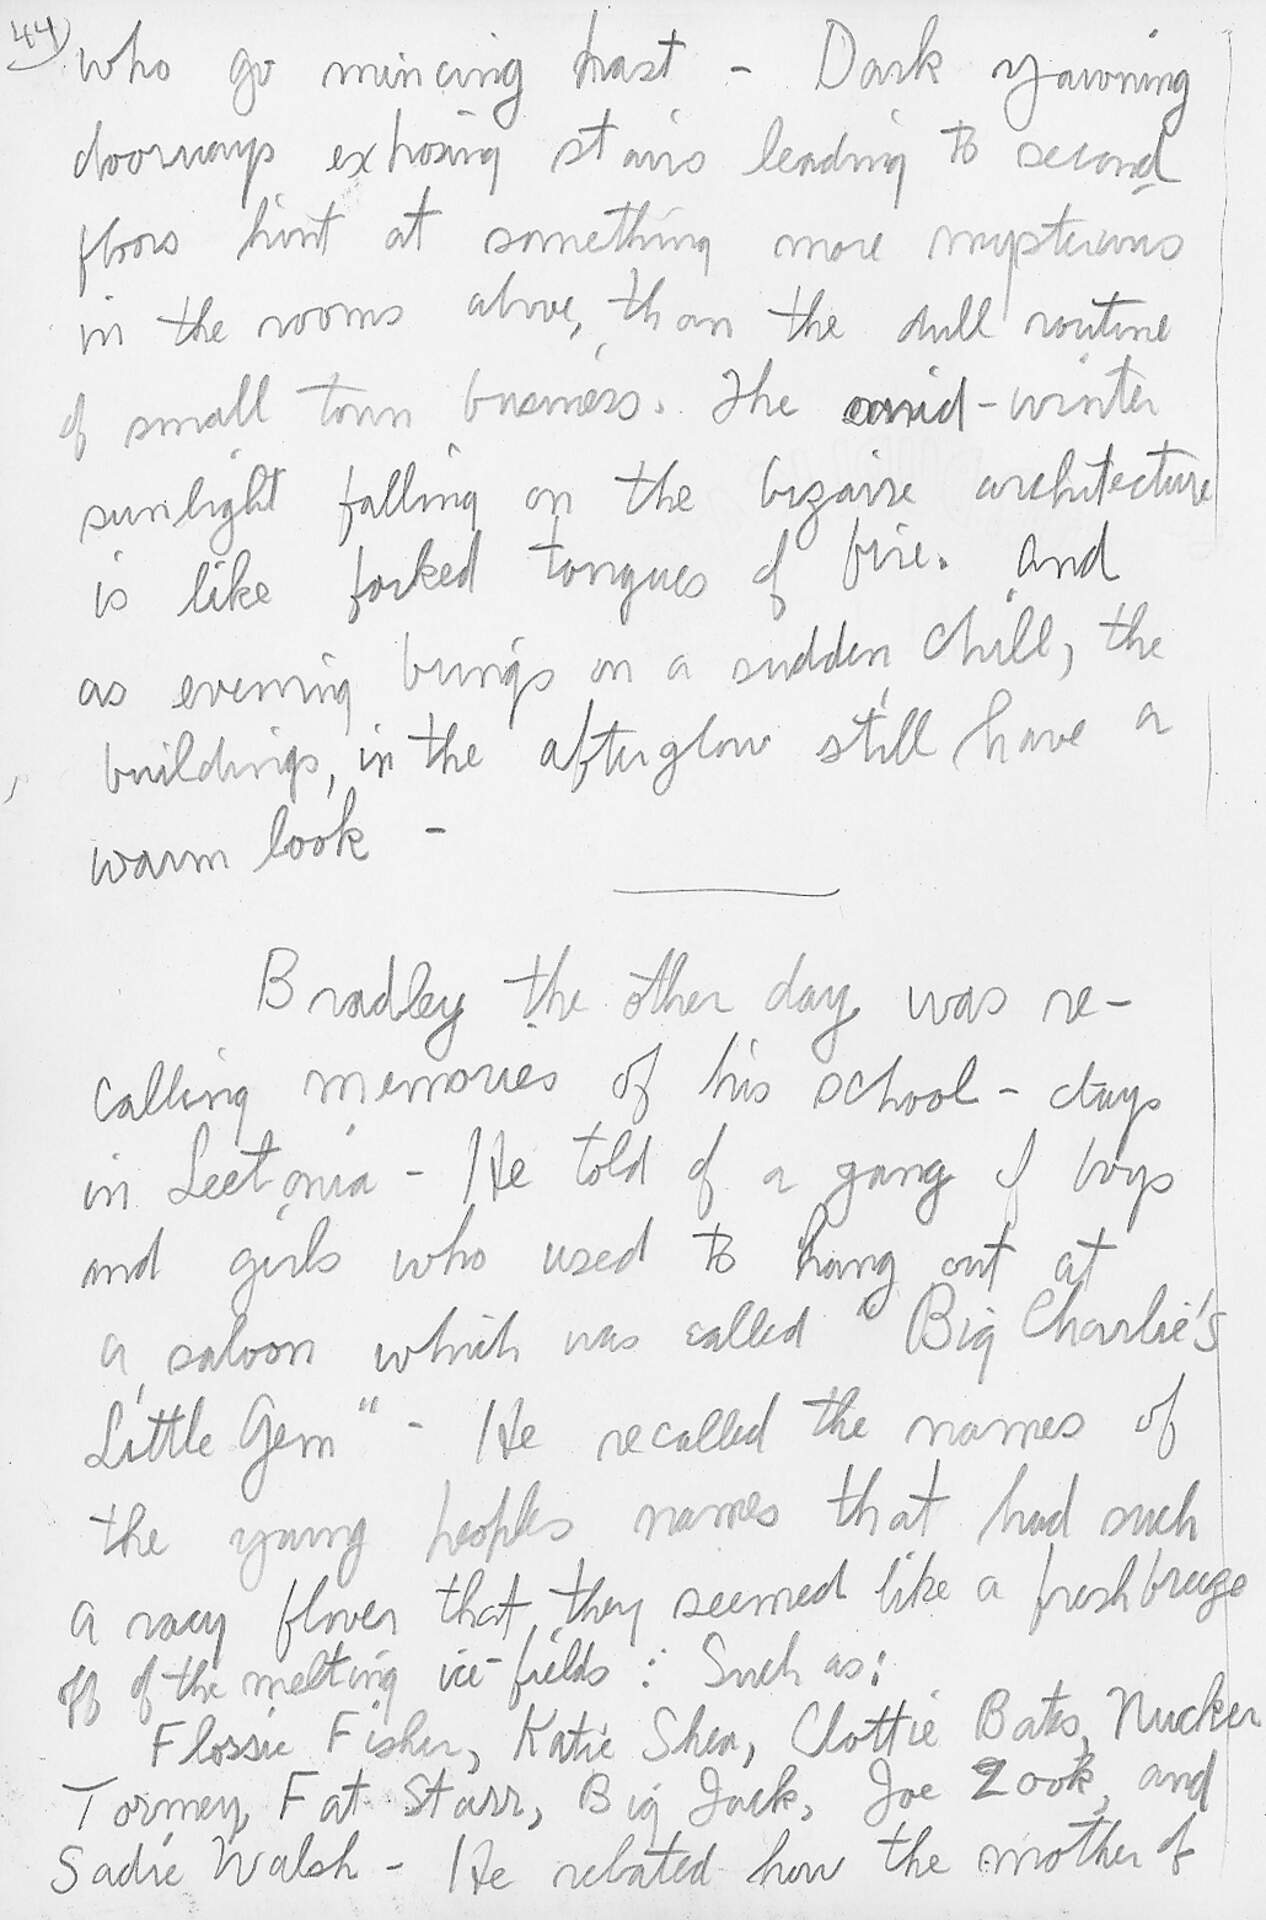 44)
who go mincing past - Dark yawning
doorways exposing stairs leading to second
floors hint at something more mysterious
in the rooms above, than the dull routine
of small town business. The mid-winter
sunlight falling on the bizaire architecture
is like forked tongues of fire. And
as evening brings on a sudden chill, the
buildings, in the afterglow still have a
warm look -
Bradley the other day was re-
calling memories of his school-days
in Leetonia - He told of a gang of boys
and girls who used to hang out at
a saloon which was called "Big Charlie's
Little Gem" - He recalled the names of
the young peoples names that had such
a racy flover that they seemed like a fresh breeze
off of the melting ice-fields : Such as:
Flossie Fisher, Katie Shea, Clottie Bates, Nucker
Tormey, Fat Starr, Big Jack, Joe Zook, and
Sadie Walsh - He related how the mother of